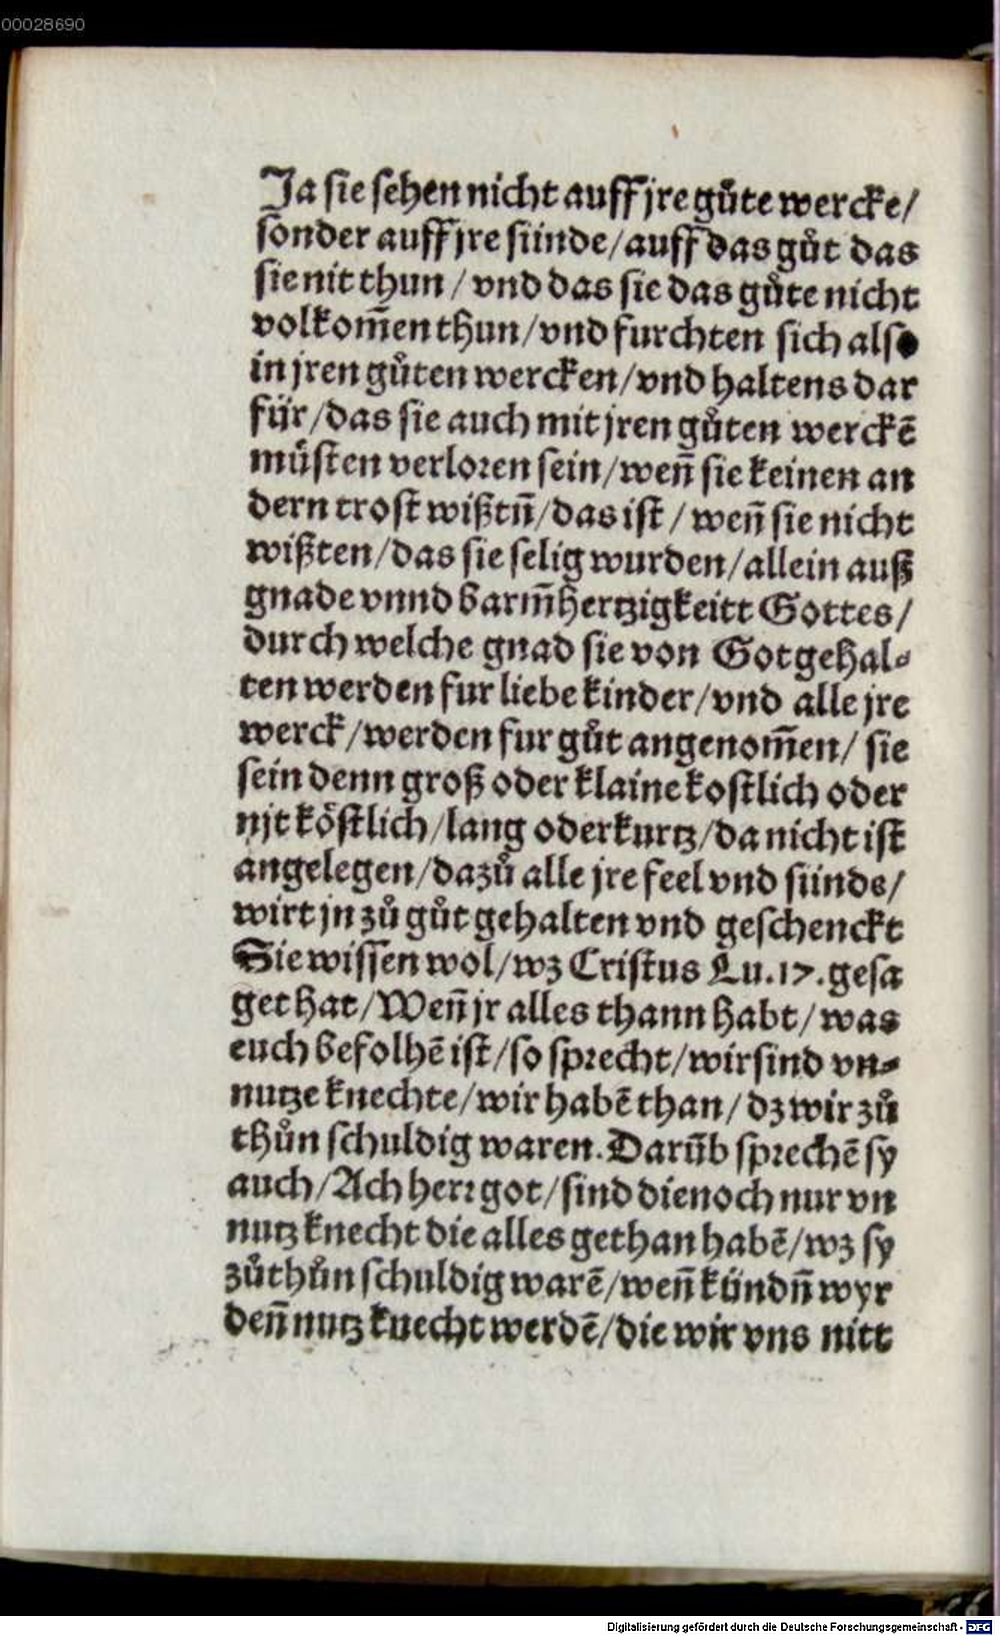 00028690
Ja sie sehen nicht auff jre gůte wercke/
sonder auff jre sünde/auff das gůt das
sie nit thun / vnd das sie das gůte nicht
volkom̃en thun/vnd furchten sich also
in jren gůten wercken/vnd haltens dar
für/das sie auch mit jren gůten werckẽ
müsten verloren sein/weñ sie keinen an
dern trost wißtñ/das ist / weñ sie nicht
wißten/das sie selig wurden/allein auß
gnade vnnd barm̃hertzigkeitt Gottes/
durch welche gnad sie von Got gehal-
ten werden fur liebe kinder/vnd alle jre
werck/werden fur gůt angenom̃en/ sie
sein denn groß oder klaine kostlich oder
njt köstlich/lang oder kurtz/da nicht ist
angelegen/dazů alle jre feel vnd sünde/
wirt jn zů gůt gehalten vnd geschenckt
Sie wissen wol/wz Cristus Lu.17.gesa
get hat/Weñ jr alles thann habt/was
euch befolhẽ ist/so sprecht/wir sind vn-
nutze knechte/wir habẽ than/dz wir zů
thůn schuldig waren.Darũb sprechẽ sy
auch/Ach herr got/sind die noch nur vn
nutz knecht die alles gethan habẽ/wz sy
zů thůn schuldig warẽ/weñ kündñ wyr
deñ nutz knecht werdẽ/die wir vns nitt
Digitalisierung gefördert durch die Deutsche Forschungsgemeinschaft - DFG